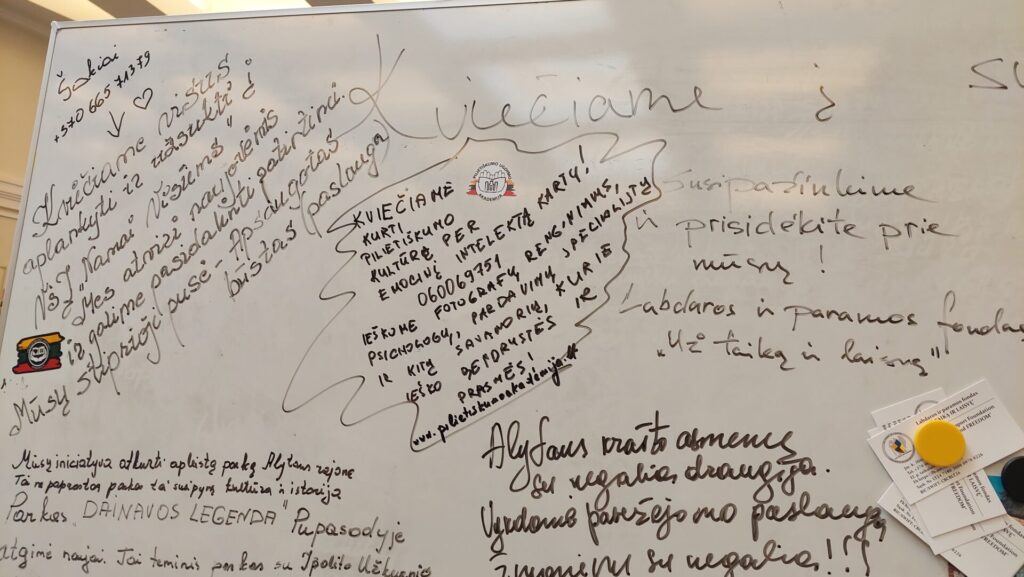 Šakiai
+370 665 71379
Kviečiame visus
aplankyti ir užsukti į
VšĮ "Namai Visiems"
Mes atvirai naujovėmis
ir galime pasidalinti patirtimi.
Mūsų stiprioji pusė - Apsaugotas
būstas paslauga
Kviečiame į
KVIEČIAME
KURTI
PILIETIŠKUMO
KULTŪRĄ PER
EMOCINĮ INTELEKTĄ KARTU!
060069751
IEŠKOME FOTOGRAFŲ RENGINIAMS,
PSICHOLOGŲ, PARDAVIMŲ SPECIALISTŲ
IR KITŲ SAVANORIŲ, KURIE
IEŠKO BENDRYSTĖS IR
PRASMĖS!
Susipažinkime
ir prisidėkite prie
mūsų!
Labdaros ir paramos fondas
"Už taiką ir laisvę"
Mūsų iniciatyva atkurti apleistą parką Alytaus rajone
Tai nepaprastas parkas tai supynų kultūra ir istorija
Parkas "DAINAVOS LEGENDA" Pupasodyje
atgimė naujai. Tai teminis parkas su Ipolito Užkurnio
Alytaus krašto asmenų
su negalia draugija.
Vykdome pavėžėjimo paslaugą
žmonėms su negalia!!!
Labdaros ir paramos fondas